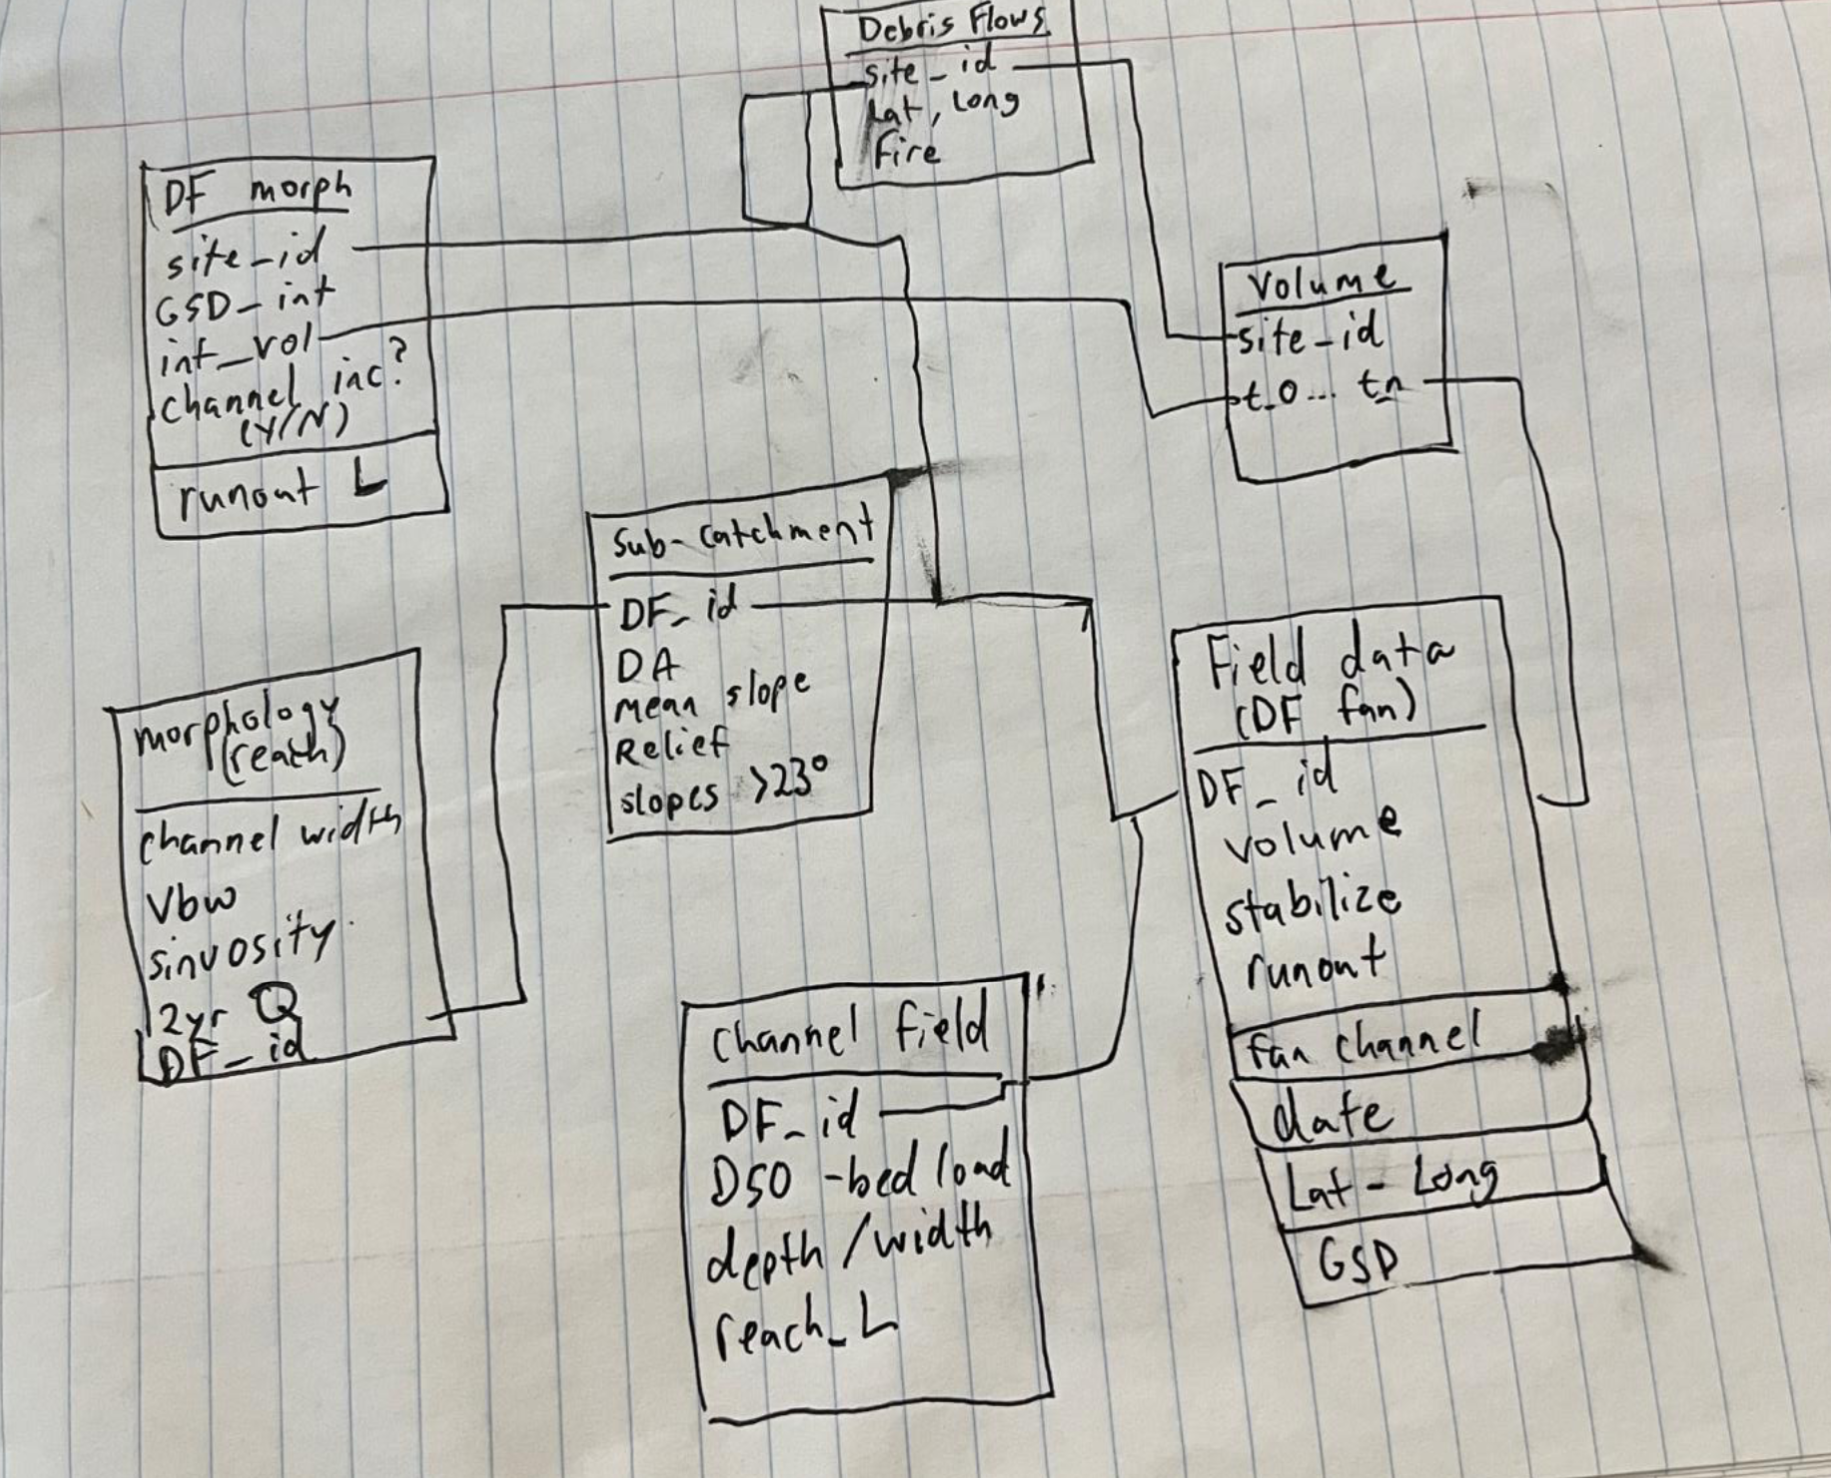 Debris Flows
site_id
Lat, Long
Fire
DF morph
site_id
GSD_int
int_vol
channel inc?
(Y/N)
runout L
Volume
site_id
t_0... t_n
Sub-catchment
DF_id
DA
mean slope
Relief
slopes >23°
morphology
(reach)
channel width
Vbw
sinuosity
2yr Q
DF_id
Field data
(DF fan)
DF_id
volume
stabilize
runout
fan channel
date
Lat-Long
GSD
Channel Field
DF_id
D50 -bed load
depth/width
reach_L